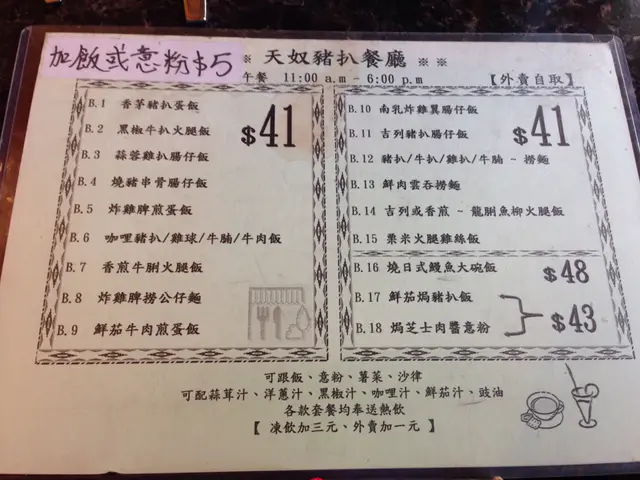 加飯或意粉$5
※ 天奴豬扒餐廳 ※ ※
午餐 11:00 a.m - 6:00 p.m 【外賣自取】
B.1 香茅豬扒蛋飯
B.2 黑椒牛扒火腿飯
B.3 蒜蓉雞扒腸仔飯
B.4 燒豬串骨腸仔飯
B.5 炸雞脾煎蛋飯
B.6 咖哩豬扒/雞球/牛腩/牛肉飯
B.7 香煎牛脷火腿飯
B.8 炸雞脾撈公仔麵
B.9 鮮茄牛肉煎蛋飯
$41
B.10 南乳炸雞翼腸仔飯
B.11 吉列豬扒腸仔飯
B.12 豬扒/牛扒/雞扒/牛腩 ~ 撈麵
B.13 鮮肉雲吞撈麵
B.14 吉列或香煎 ~ 龍脷魚柳火腿飯
B.15 栗米火腿雞絲飯
$41
B.16 燒日式鰻魚大碗飯 $48
B.17 鮮茄焗豬扒飯
B.18 焗芝士肉醬意粉
$43
可跟飯、意粉、薯菜、沙律
可配蒜茸汁、洋蔥汁、黑椒汁、咖哩汁、鮮茄汁、豉油
各款套餐均奉送熱飲
【 凍飲加三元、外賣加一元 】